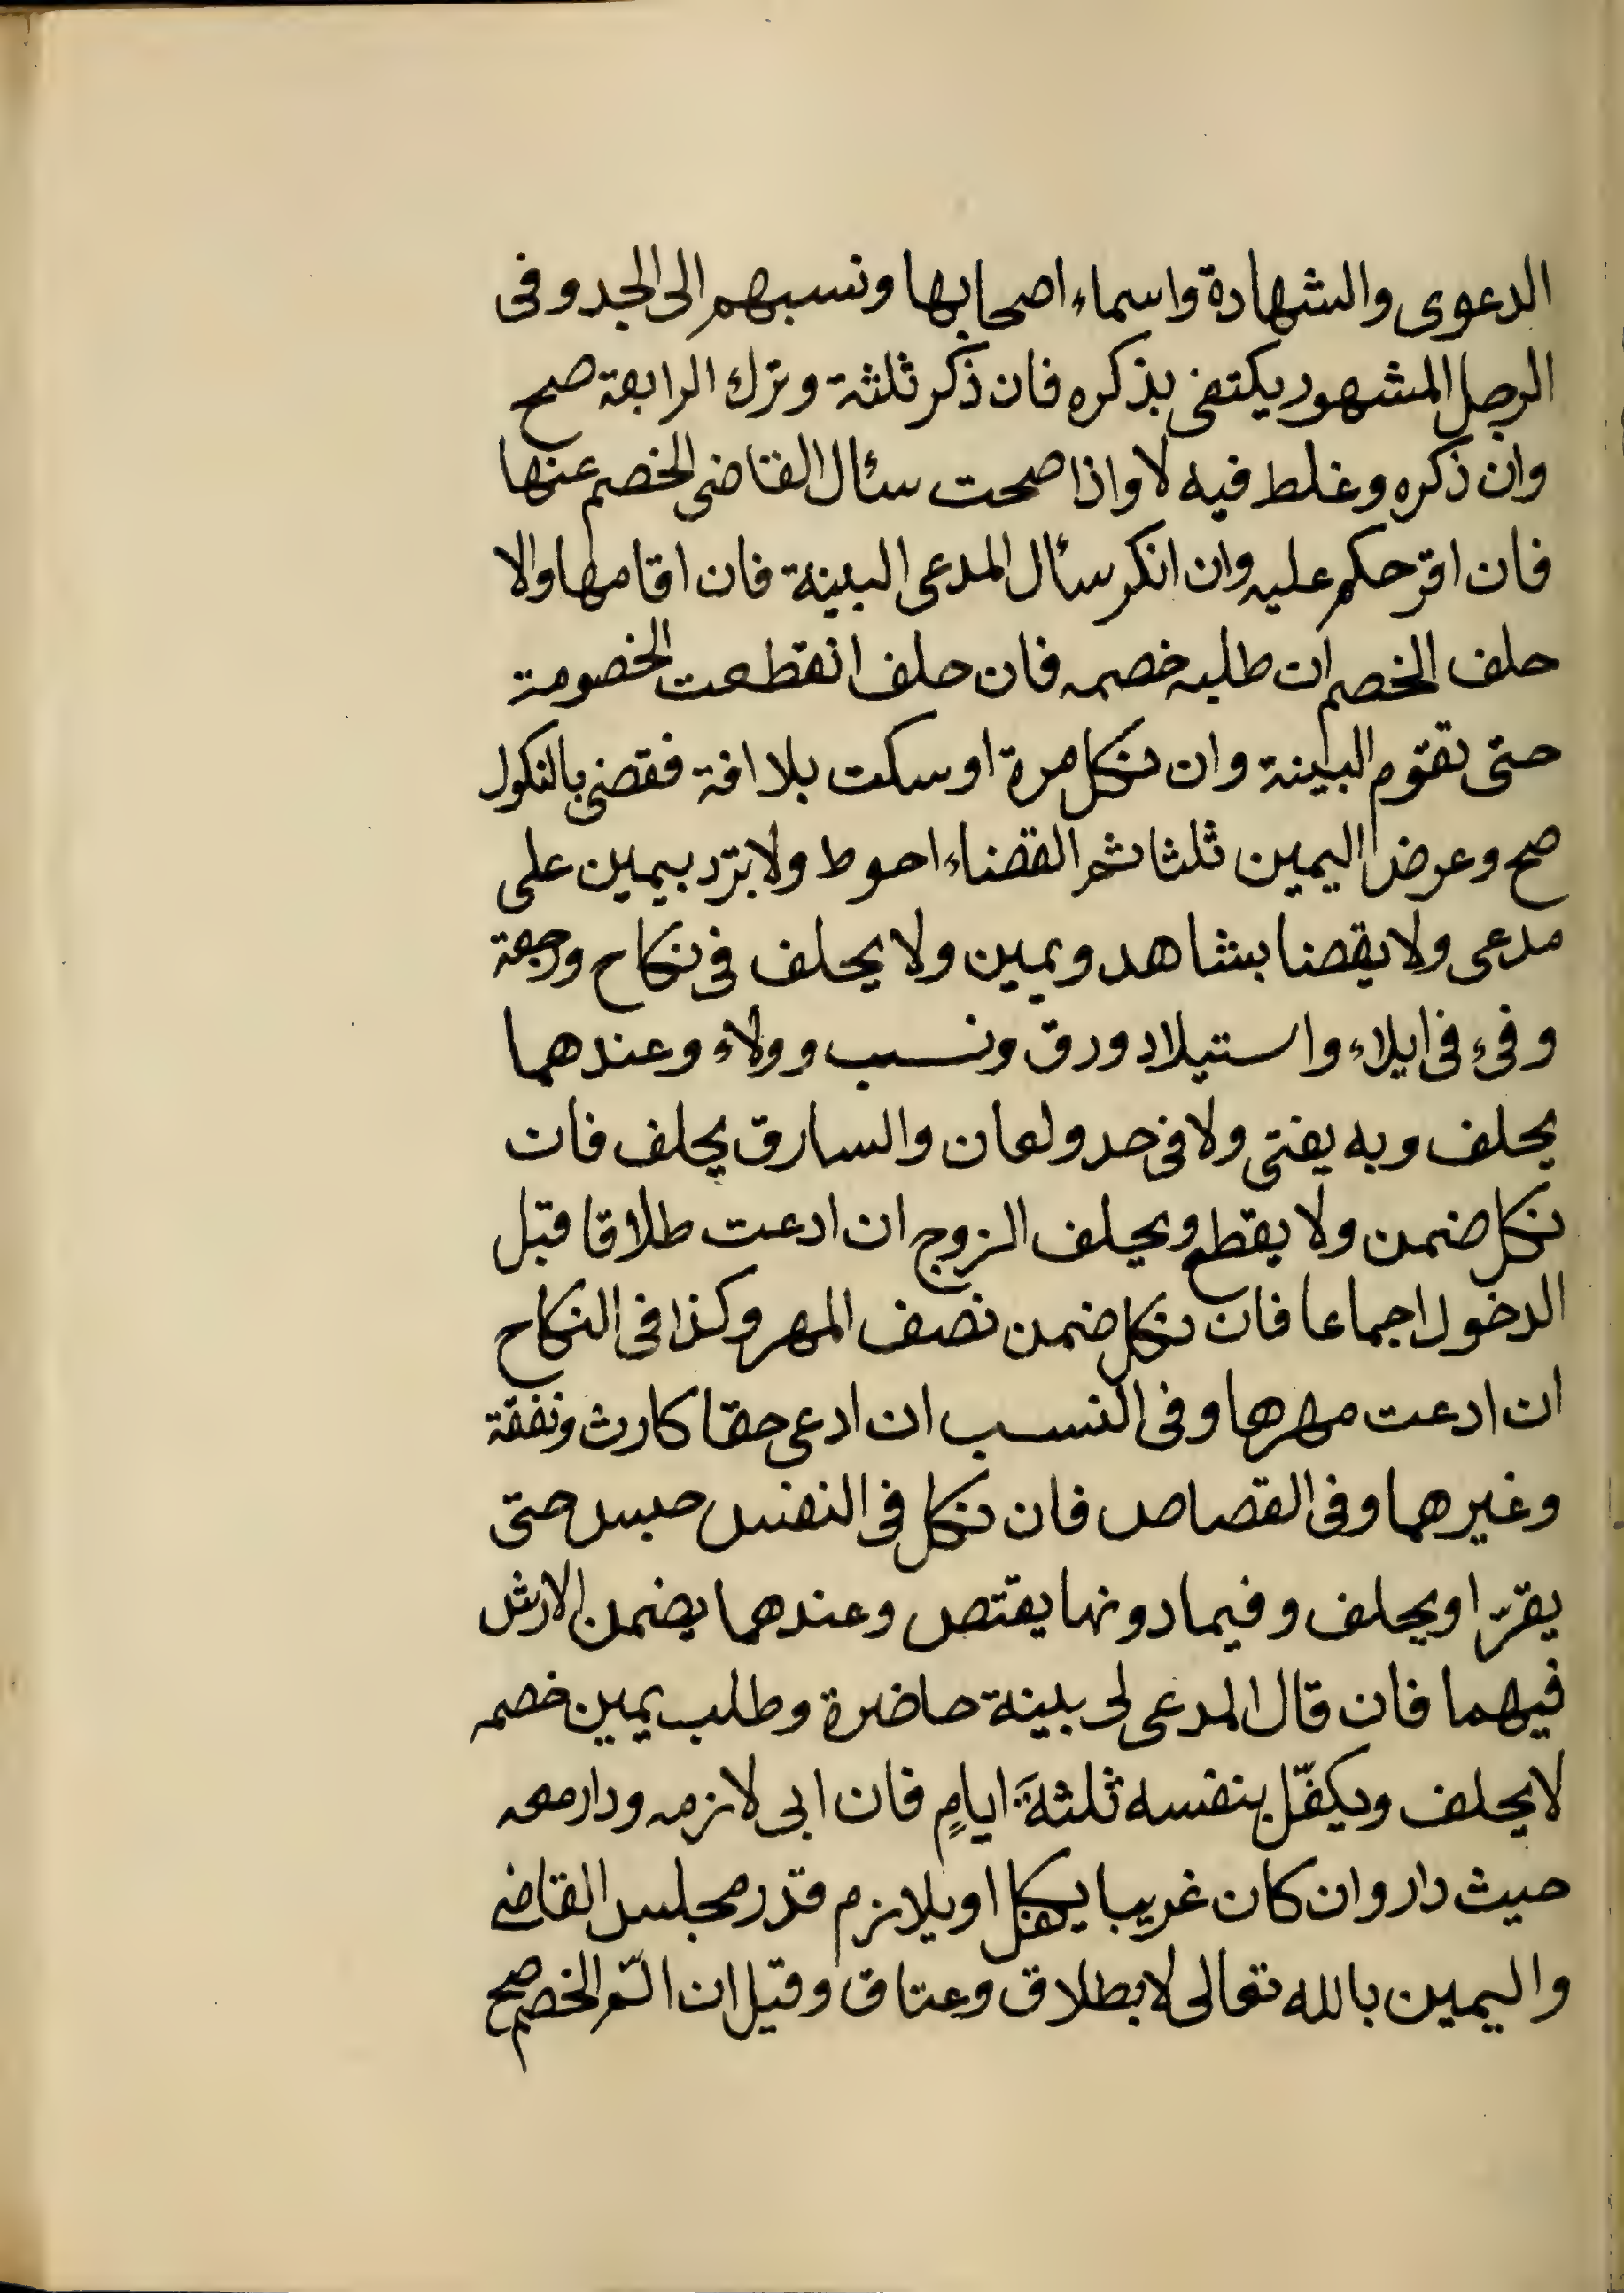 الدعوى والشهادة واسماء اصحابها ونسبهم الى الجد وفى
الرجل المشهور يكتفى بذكره فان ذكر ثلثة وترك الرابعة صح
وان ذكره وغلط فيه لا واذا صحت سئال القاضى الخصم عنها
فان اقر حكم عليه وان انكر سئال المدعى البينة فان اقامها والا
حلف الخصم ان طلبه خصمه فان حلف انقطعت الخصومة
حتى تقوم البينة وان نكل مرة او سكت بلا افة فقضى بالنكول
صح وعرض اليمين ثلثا ثم القضاء احوط ولا ترد يمين على
مدعى ولا يقضا بشاهد ويمين ولا يحلف فى نكاح ورجعة
وفىء فى ايلاء واستيلاد ورق ونسب وولاء وعندهما
يحلف وبه يفتى ولا فى حد ولعان والسارق يحلف فان
نكل ضمن ولا يقطع ويحلف الزوج ان ادعت طلاقا قبل
الدخول اجماعا فان نكل ضمن نصف المهر وكذا فى النكاح
ان ادعت مهرها وفى النسب ان ادعى حقا كارث ونفقة
وغيرهما وفى القصاص فان نكل فى النفس حبس حتى
يقرّ او يحلف وفيما دونها يقتص وعندهما يضمن الارش
فيهما فان قال المدعى لى بينة حاضرة وطلب يمين خصمه
لا يحلف ويكفّل بنفسه ثلثةَ ايامٍ فان ابى لازمه ودار معه
حيث دار وان كان غريبا يكفل او يلازم قدر مجلس القاضى
واليمين بالله تعالى لا بطلاق وعتاق وقيل ان الّح الخصم صح